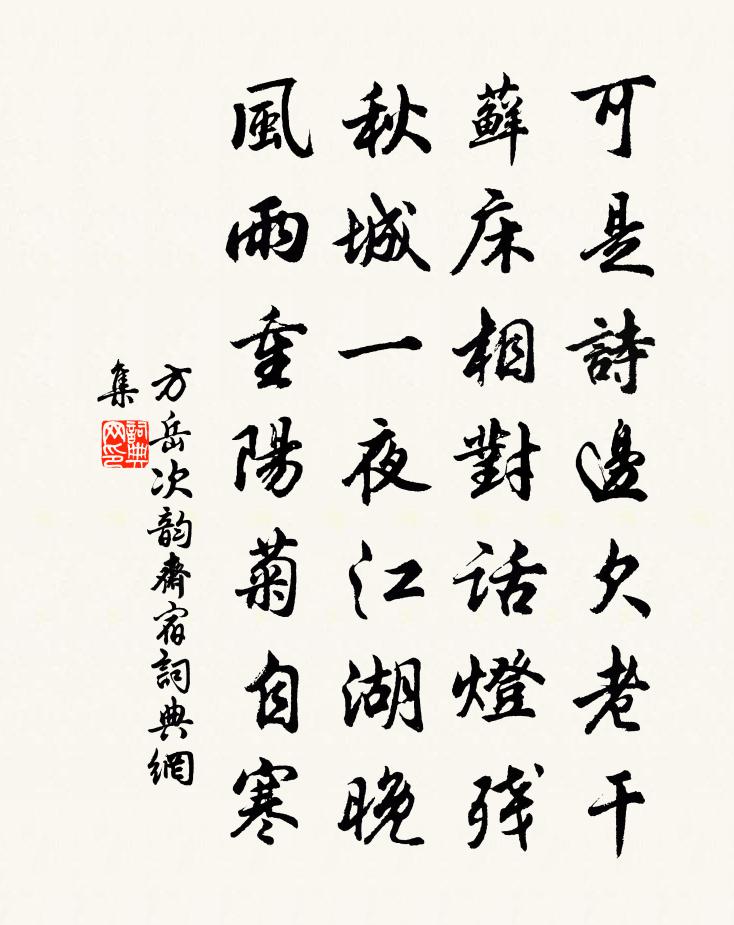 可是詩邊欠老干
蘚床相對話燈残
秋城一夜江湖晚
風雨重陽菊自寒
方岳次韵齋宿詞典網
集
詞典
网印